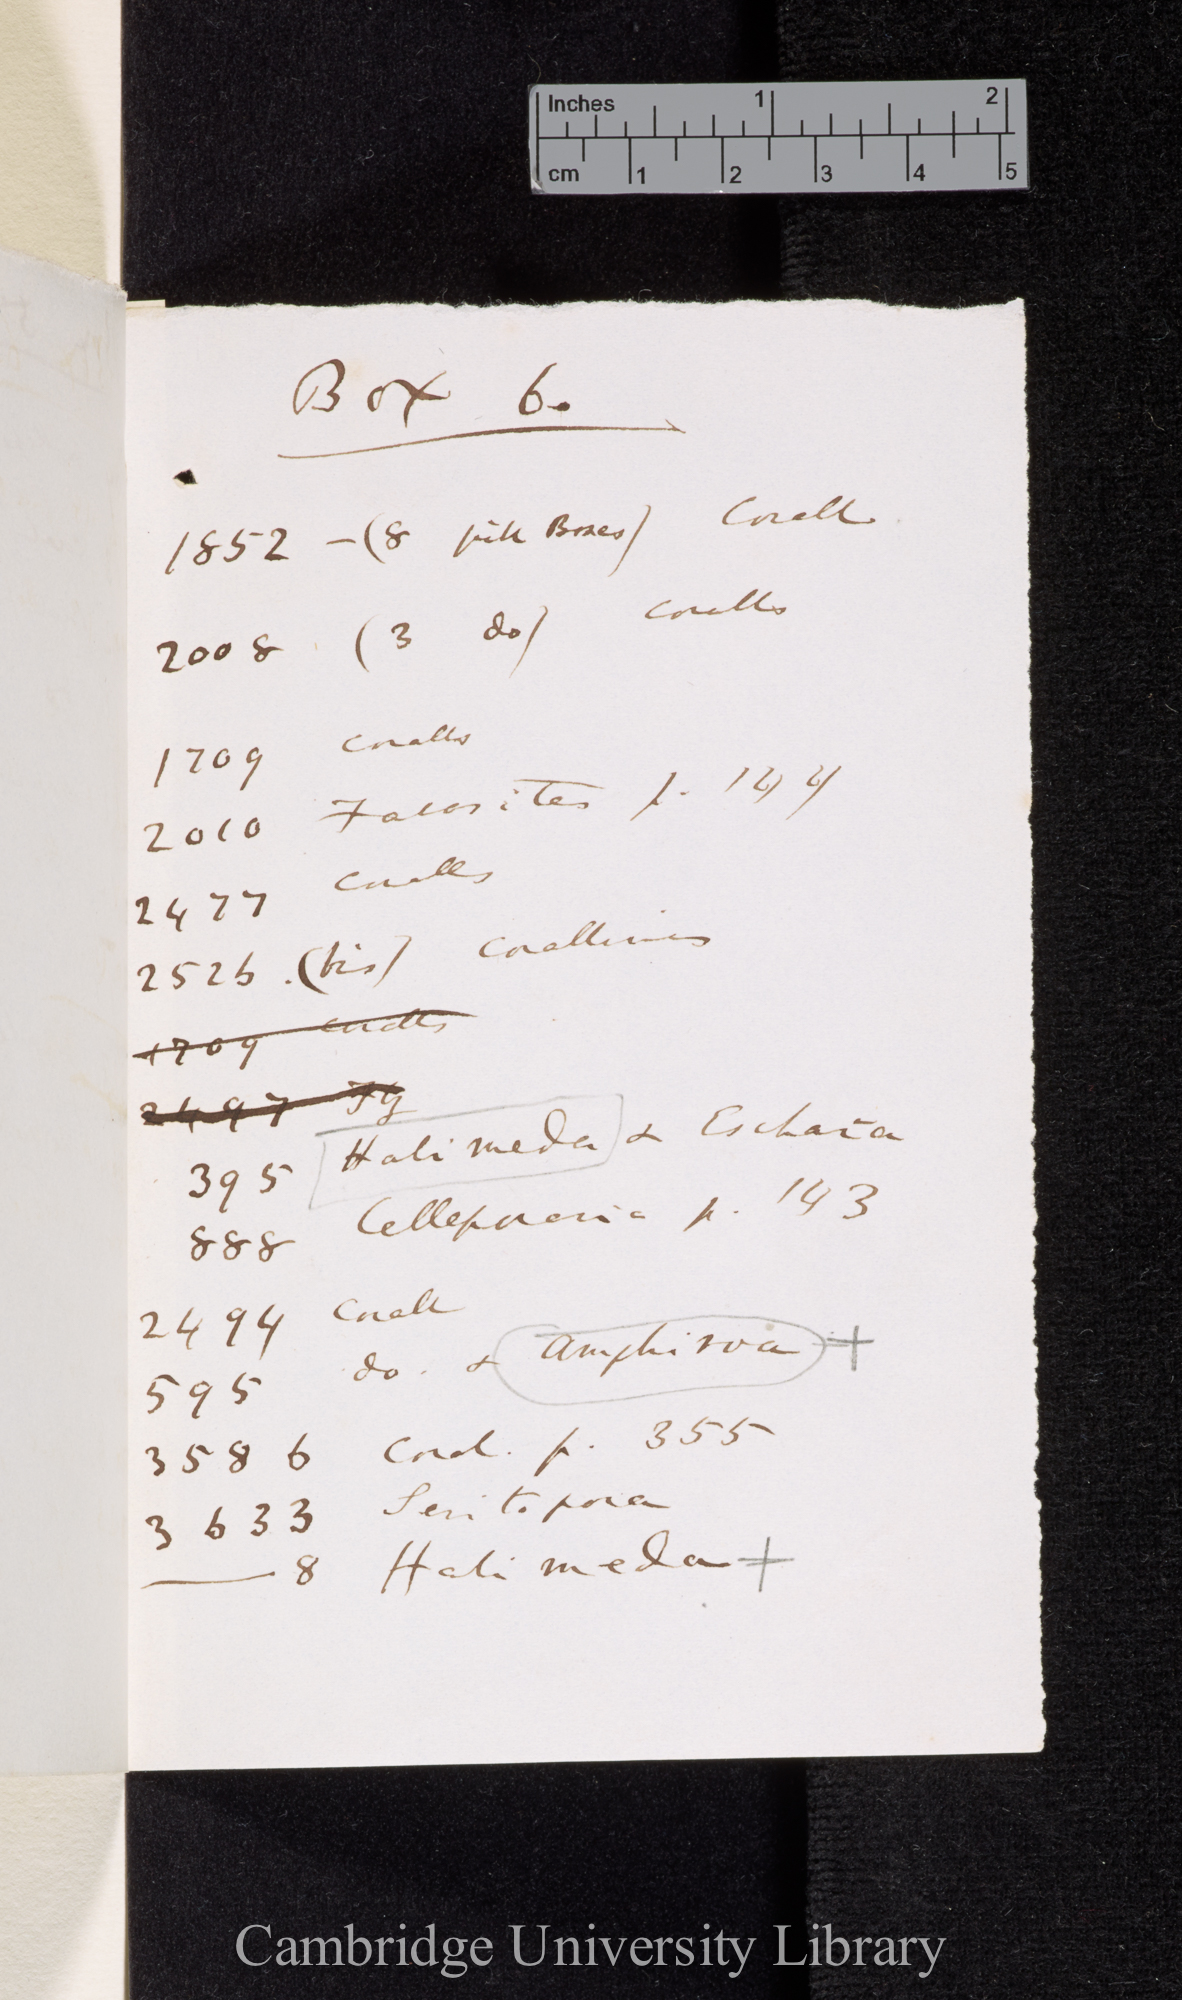 Inches 1 2
cm 1 2 3 4 5
Box 6.
1852 - (8 pill Boxes) Corall
2008 (3 do) Coralls
1709 Coralls
2010 Favosites p. 144
2477 Coralls
2526 . (bis) Corallines
1709 Coralls
2497
395 Halimeda & Eschara
888 Celleporaria p. 143
2494 Corall
595 do. & Amphiroa +
3586 Coral. p. 355
3633 Seritopora
— 8 Halimeda +
Cambridge University Library